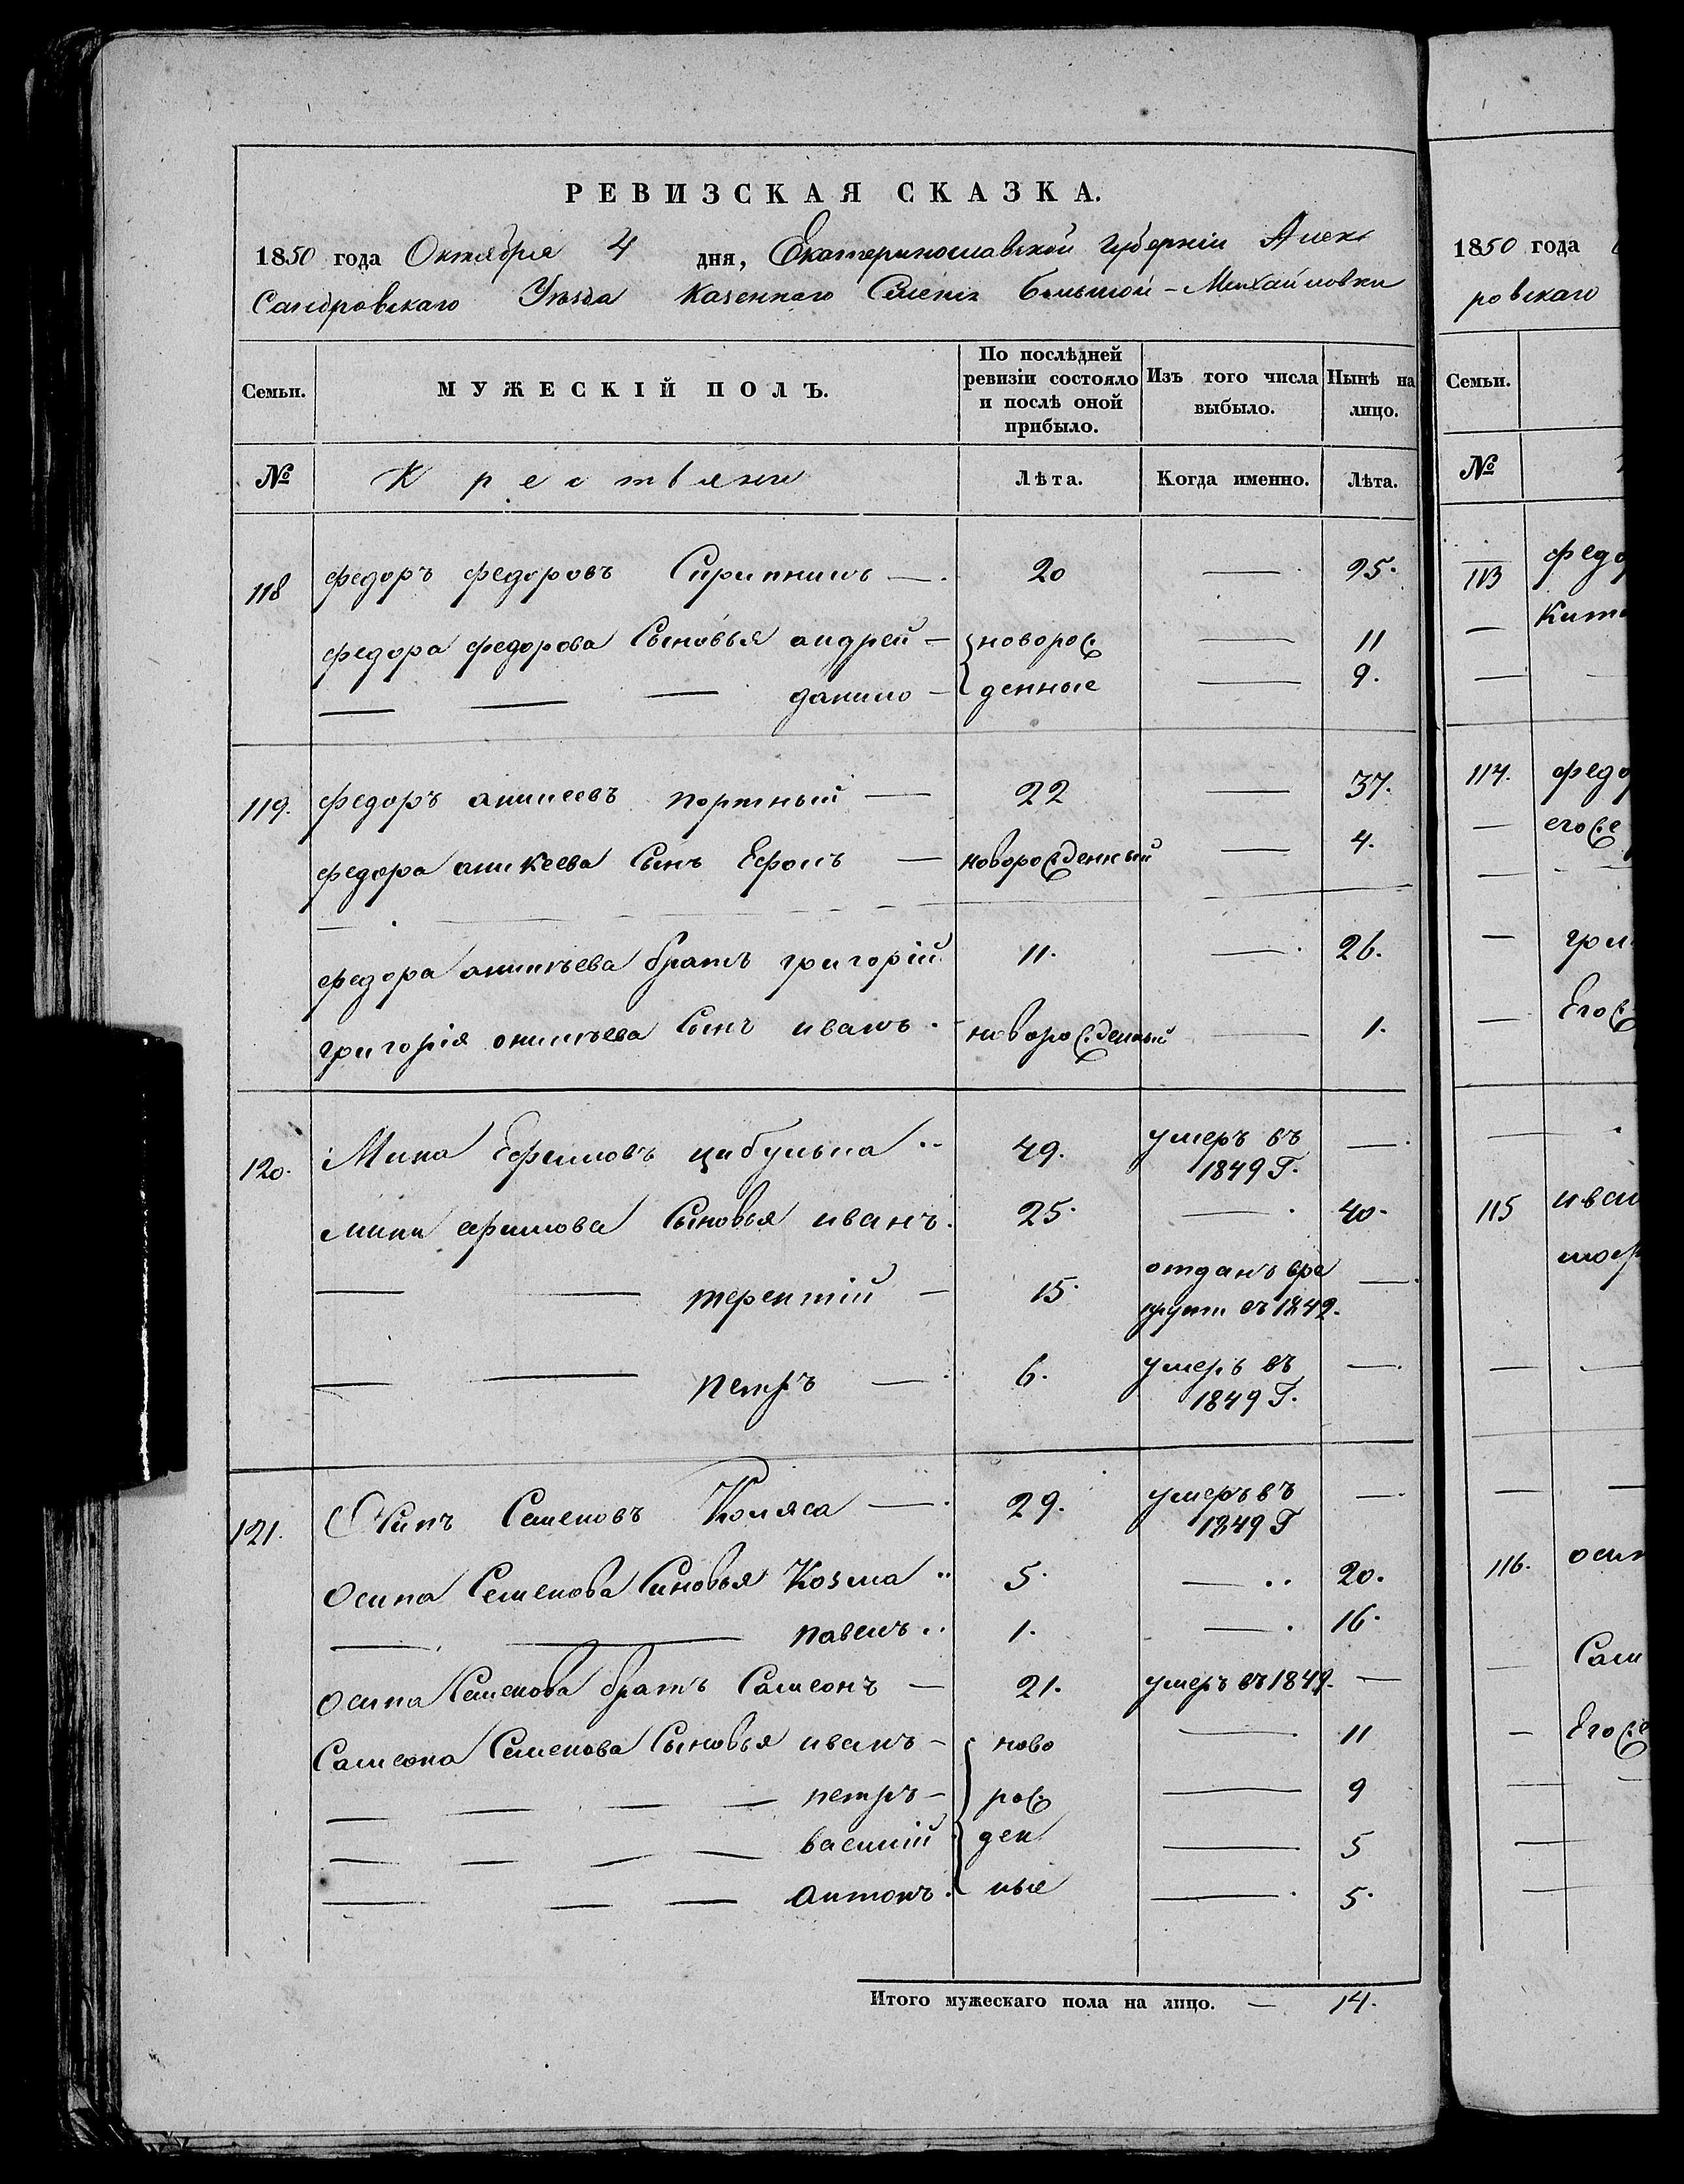 РЕВИЗСКАЯ СКАЗКА.
1850 года Октября 4 дня, Екатеринославской губерніи Алек
сандровскаго Уѣзда Казеннаго Селенія Большой-Михайловки
Семьи. МУЖЕСКІЙ ПОЛЪ. По послѣдней ревизіи состояло и послѣ оной прибыло. Изъ того числа выбыло. Нынѣ на лицо.
№ Крестьяни Лѣта. Когда именно. Лѣта.
118 федоръ федоровъ — 20 — 25.
федора федорова Сыновья андрей — новорож — 11
— — — данило — денные — 9.
119. федоръ аникеевъ портный — 22 — 37.
федора аникеева Сынъ — новорожденный — 4.
федора аникѣева братъ григорій 11. — 26.
григорія оникѣева Сынъ иванъ - новорожденный — 1.
120. Мина Ефимовъ цибулька 49. умеръ въ 1849 Г. —
мини ефимова Сыновья иванъ. 25. — 40.
— — терентій — 15. отданъ врекрути въ 1849. —
— — петръ — 6. умеръ въ 1849 Г. —
121. Осипъ Семеновъ Коляса — 29. умеръ въ 1849 Г —
Осипа Семенова Синовья Козма 5. — 20.
— — павелъ 1. — 16.
Осипа Семенова братъ Самсонъ — 21. умеръ въ 1849. —
Самсона Семенова Сыновья иванъ - ново — 11
— — — — петръ - рож — 9
— — — — василій ден — 5
— — — антонъ. ные — 5.
Итого мужескаго пола на лицо. — 14.
1850 года
ровскаго
Семьи.
№
113 федо
114. федо
115 иван
116. осип